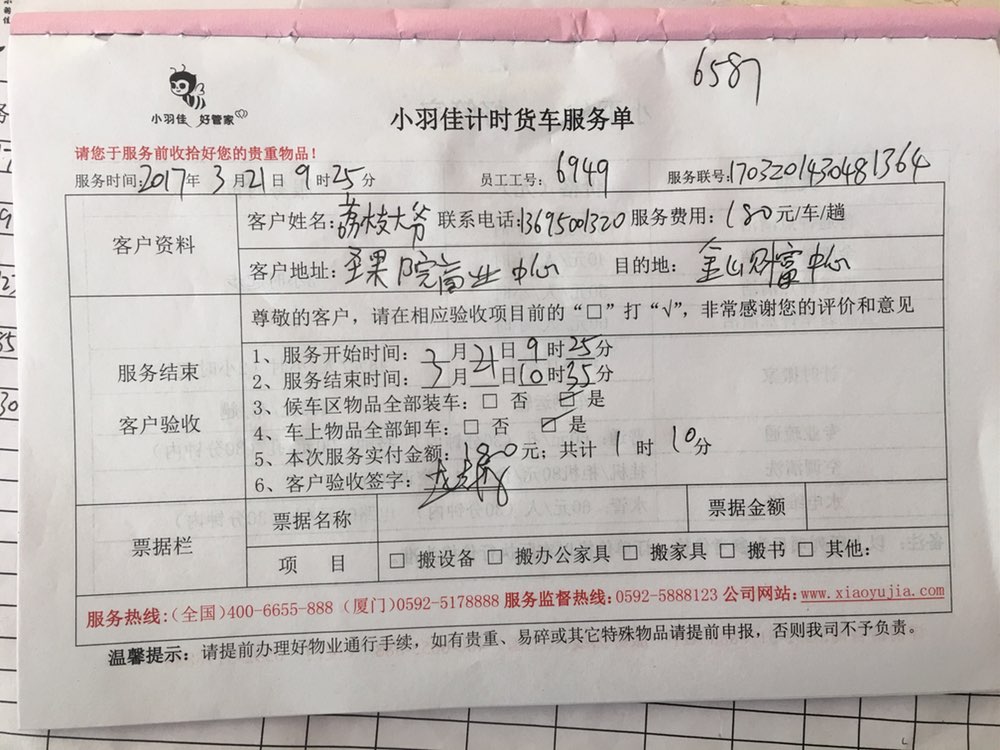 6587
小羽佳 好管家
小羽佳计时货车服务单
请您于服务前收拾好您的贵重物品！
服务时间:2017年 3月21日 9时25分 员工工号: 6949 服务联号:1703201430481364
客户资料
客户姓名:荔枝大爷 联系电话:13695001320 服务费用: 180元/车/趟
客户地址: 院商业中心 目的地: 金山财富中心
服务结束
客户验收
尊敬的客户，请在相应验收项目前的“□”打“√”，非常感谢您的评价和意见
1、服务开始时间: 3月21日9时25分
2、服务结束时间: 3月 日10时35分
3、候车区物品全部装车: □ 否 ☑ 是
4、车上物品全部卸车: □ 否 ☑ 是
5、本次服务实付金额: 180元; 共计 1 时 10分
6、客户验收签字:
票据栏
票据名称 票据金额
项 目 □ 搬设备 □ 搬办公家具 □ 搬家具 □ 搬书 □ 其他:
服务热线:(全国)400-6655-888 (厦门)0592-5178888 服务监督热线:0592-5888123 公司网站:www.xiaoyujia.com
温馨提示: 请提前办理好物业通行手续，如有贵重、易碎或其它特殊物品请提前申报，否则我司不予负责。